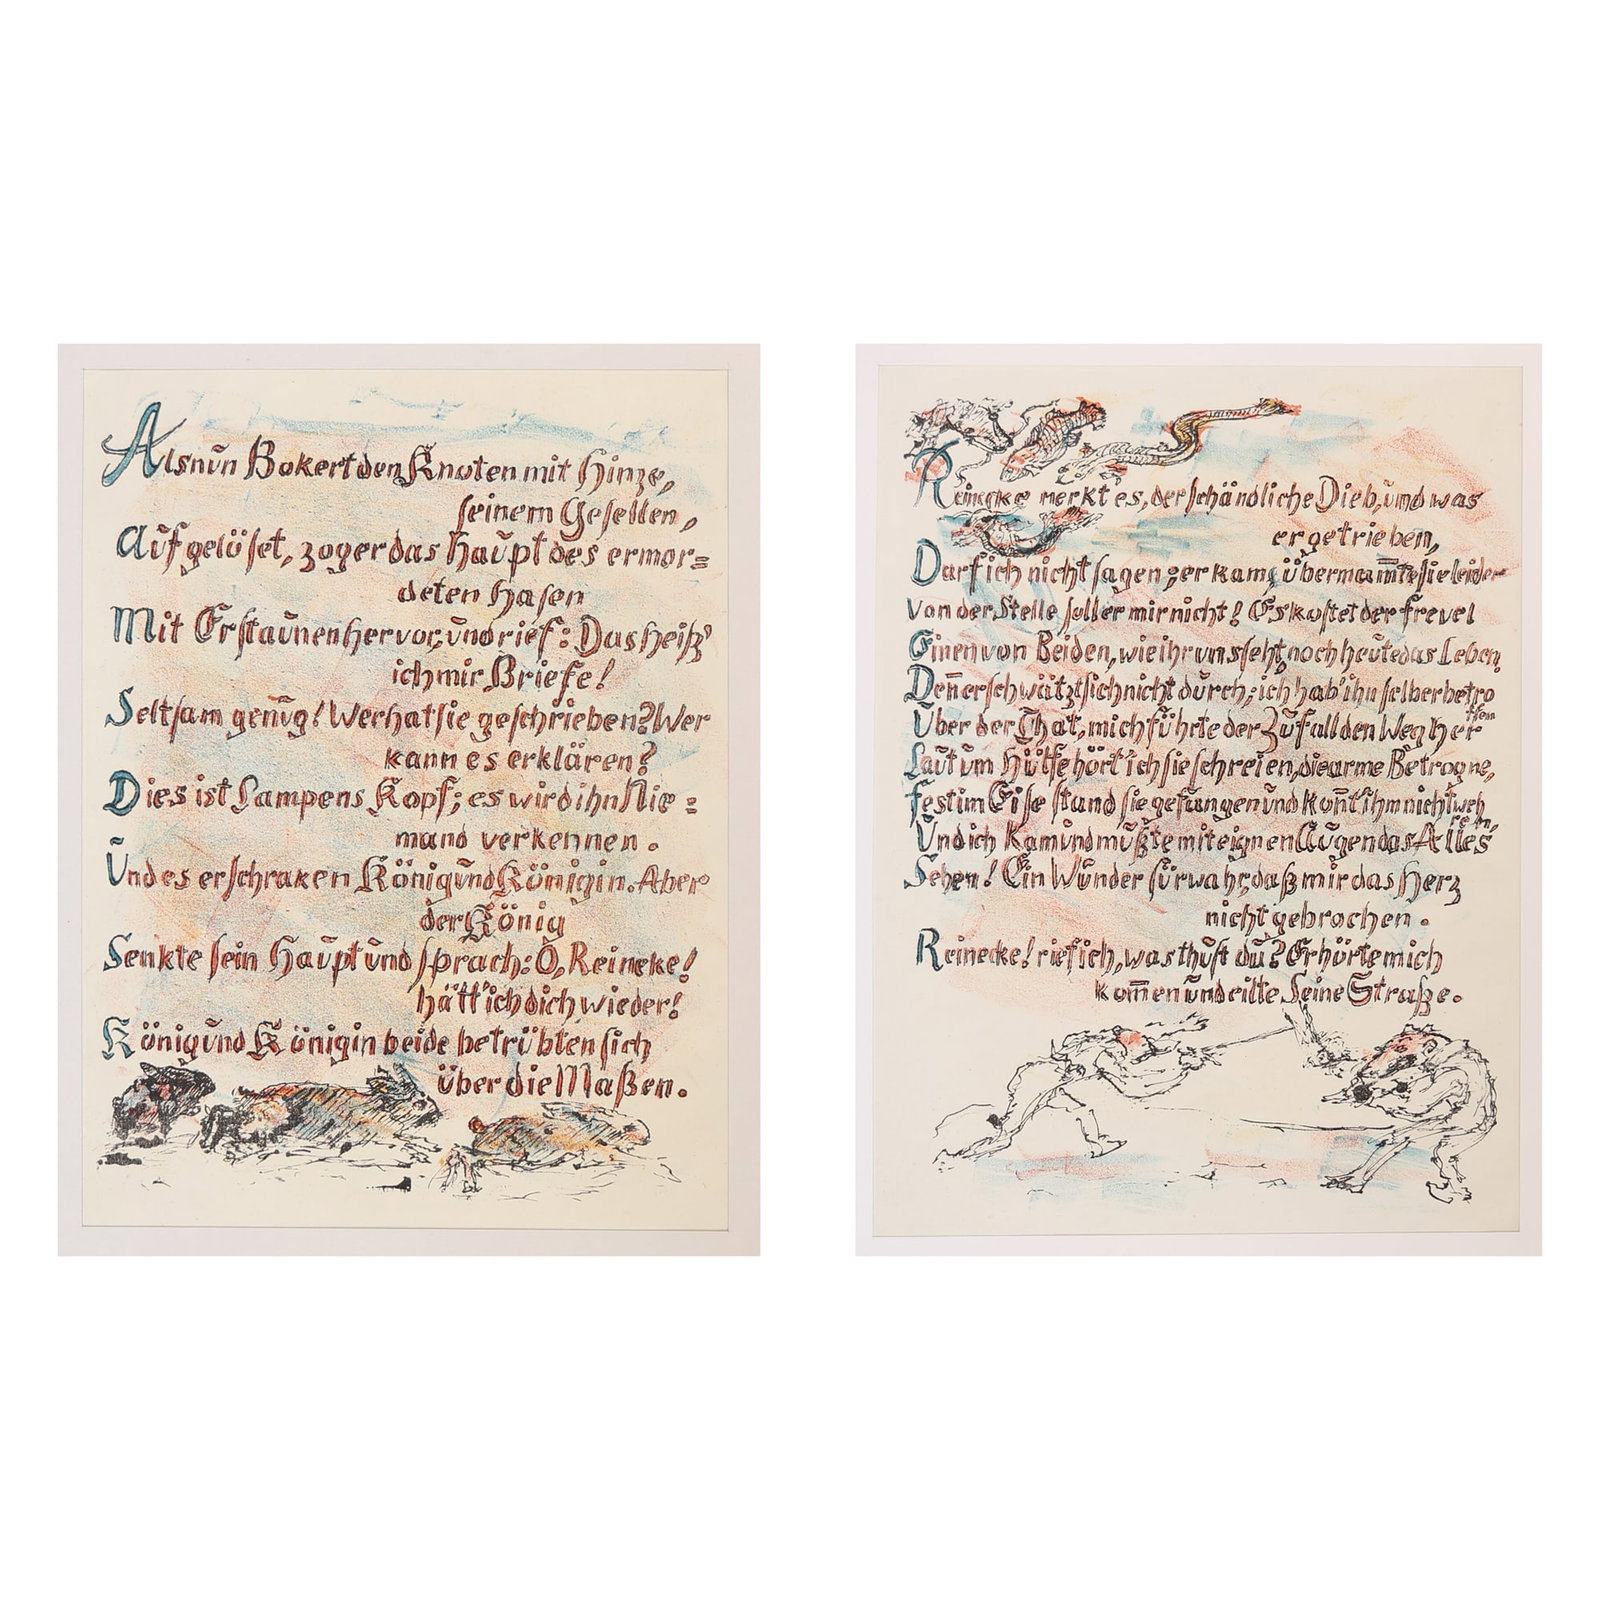 Als nun Bokert den Knoten mit Hinze,
seinem Gesellen,
Aufgelöset, zog er das Haupt des ermor=
deten Hasen
Mit Erstaunen hervor, und rief: Das heiß'
ich mir Briefe!
Seltsam genug! Wer hat sie geschrieben? Wer
kann es erklären?
Dies ist Lampens Kopf; es wird ihn Nie=
mand verkennen.
Und es erschraken König und Königin. Aber
der König
Senkte sein Haupt und sprach: O, Reineke!
hätt' ich dich wieder!
König und Königin beide betrübten sich
über die Maßen.
Reinecke merkt es, der schändliche Dieb, und was
er getrieben,
Darf ich nicht sagen; er kam, übermannte sie leider
Von der Stelle soll er mir nicht! Es kostet der Frevel
Einen von Beiden, wie ihr uns seht, noch heute das Leben,
Denn er schwätzt sich nicht durch; ich hab' ihn selber betro
ffen
Über der That, mich führte der Zufall den Weg her
Laut um Hülfe hört' ich sie schreien, die arme Betrogne,
Fest im Eise stand sie gefangen und konnt ihm nicht weh
ren,
Und ich kam und mußte mit eignen Augen das Alles
Sehen! Ein Wunder fürwahr, daß mir das Herz
nicht gebrochen.
Reinecke! rief ich, was thust du? Er hörte mich
kommen und eilte Seine Straße.